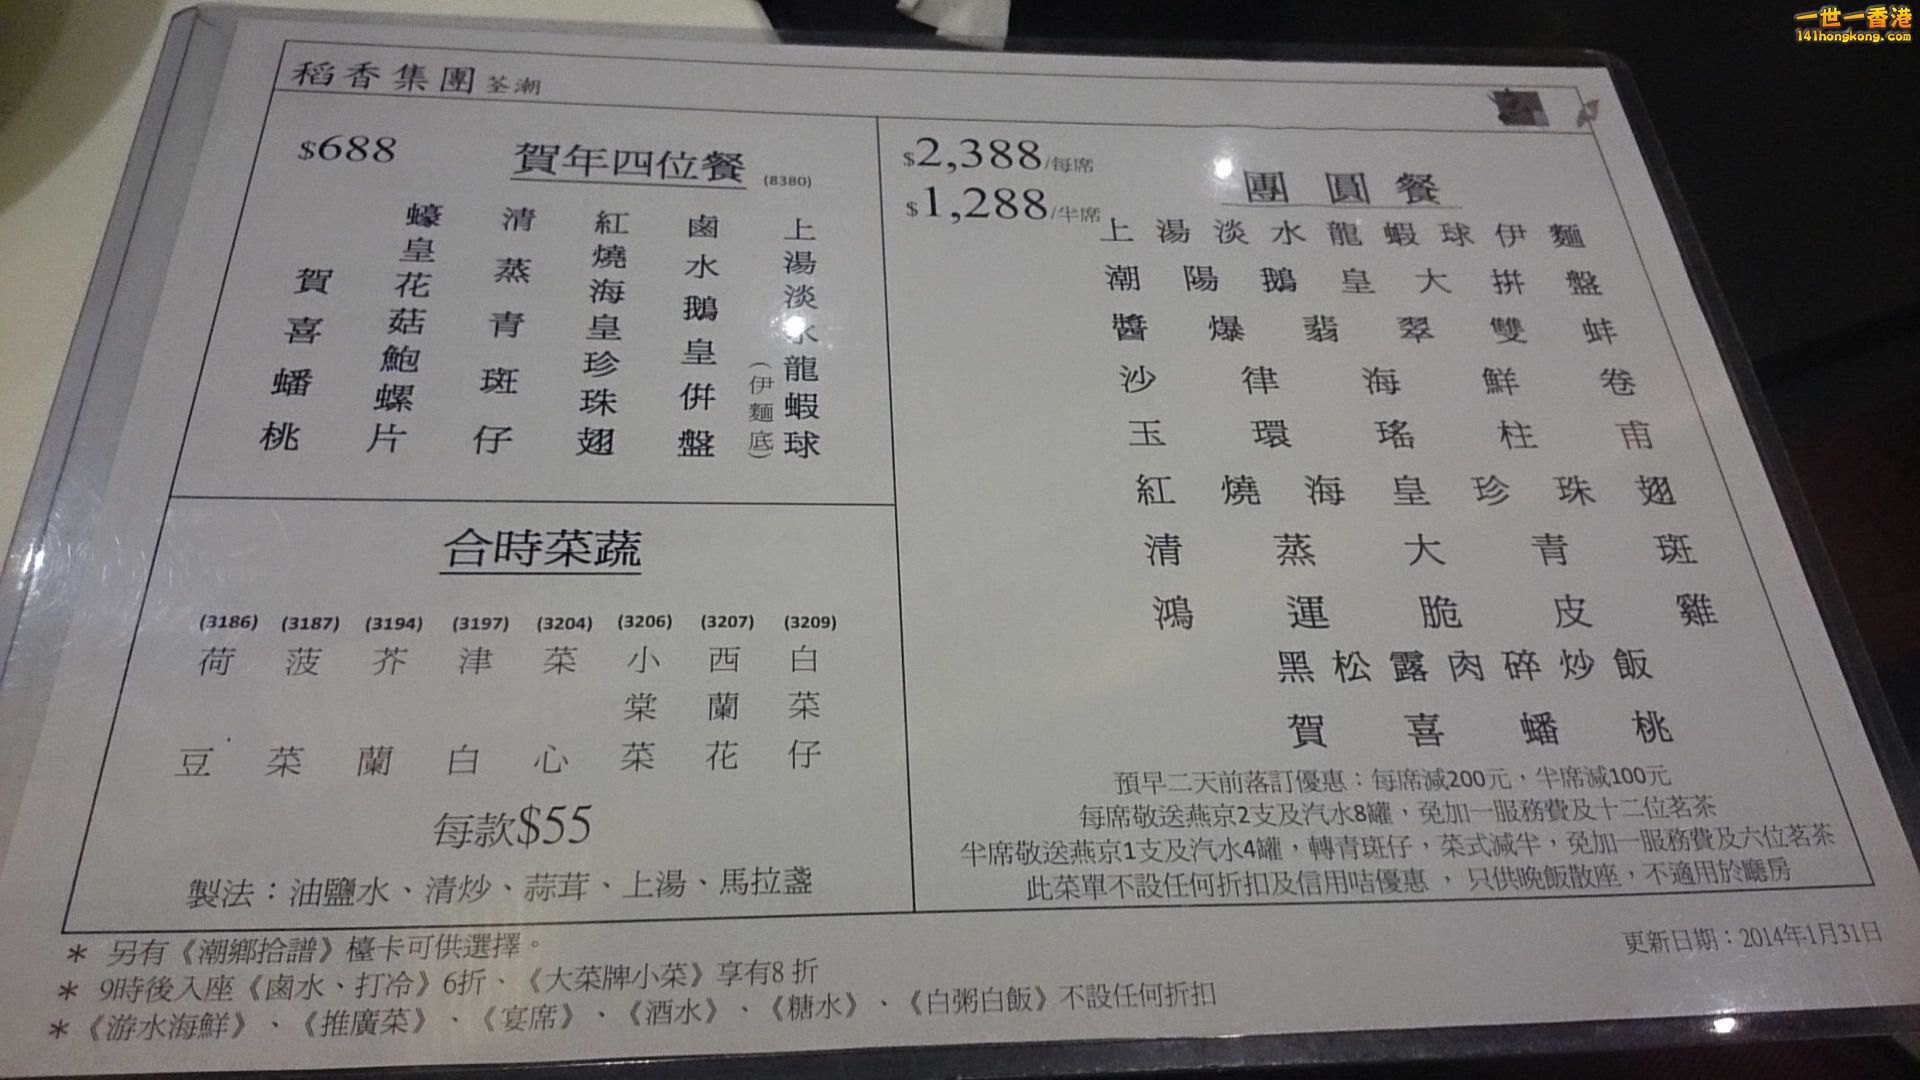 一世一香港
141hongkong.com
稻香集團 荃潮
$688
賀年四位餐 (8380)
上湯淡水龍蝦球
(伊麵底)
鹵水鵝皇併盤
紅燒海皇珍珠翅
清蒸青斑仔
蠔皇花菇鮑螺片
賀喜蟠桃
合時菜蔬
(3186) (3187) (3194) (3197) (3204) (3206) (3207) (3209)
荷豆
菠菜
芥蘭
津白
菜心
小棠菜
西蘭花
白菜仔
每款$55
製法：油鹽水、清炒、蒜茸、上湯、馬拉盞
$2,388/每席
$1,288/半席
團圓餐
上湯淡水龍蝦球伊麵
潮陽鵝皇大拼盤
醬爆翡翠雙蚌
沙律海鮮卷
玉環瑤柱甫
紅燒海皇珍珠翅
清蒸大青斑
鴻運脆皮雞
黑松露肉碎炒飯
賀喜蟠桃
預早二天前落訂優惠：每席減200元，半席減100元
每席敬送燕京2支及汽水8罐，免加一服務費及十二位茗茶
半席敬送燕京1支及汽水4罐，轉青斑仔，菜式減半，免加一服務費及六位茗茶
此菜單不設任何折扣及信用咭優惠，只供晚飯散座，不適用於廳房
＊ 另有《潮鄉拾譜》檯卡可供選擇。
＊ 9時後入座《鹵水、打冷》6折、《大菜牌小菜》享有8折
＊《游水海鮮》、《推廣菜》、《宴席》、《酒水》、《糖水》、《白粥白飯》不設任何折扣
更新日期：2014年1月31日